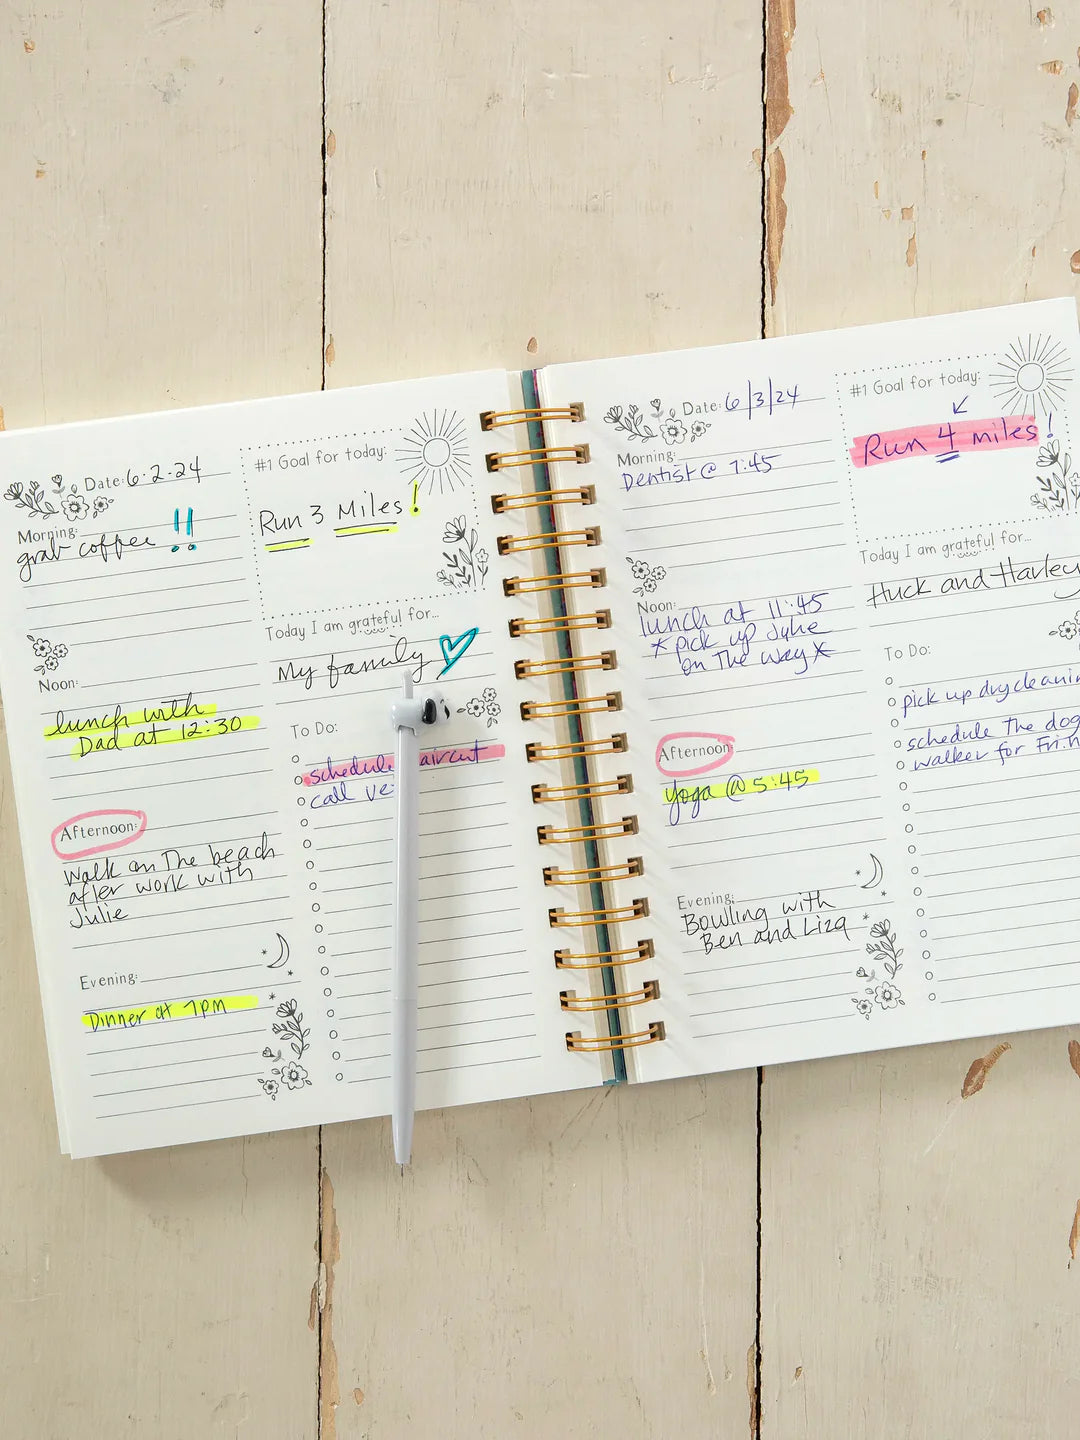 Date: 6-2-24
Morning:
grab coffee !!
Noon:
lunch with
Dad at 12:30
Afternoon:
Walk on The beach
after work with
Julie
Evening:
Dinner at 7pm
#1 Goal for today:
Run 3 Miles!
Today I am grateful for...
My family
To Do:
schedule
call
Date: 6/3/24
Morning:
Dentist @ 7:45
Noon:
lunch at 11:45
*pick up Julie
on The way*
Afternoon:
Yoga @ 5:45
Evening:
Bowling with
Ben and Liza
#1 Goal for today:
Run 4 miles!
Today I am grateful for...
Huck and Harley
To Do:
pick up dry cleanin
schedule The dog
walker for Fri.